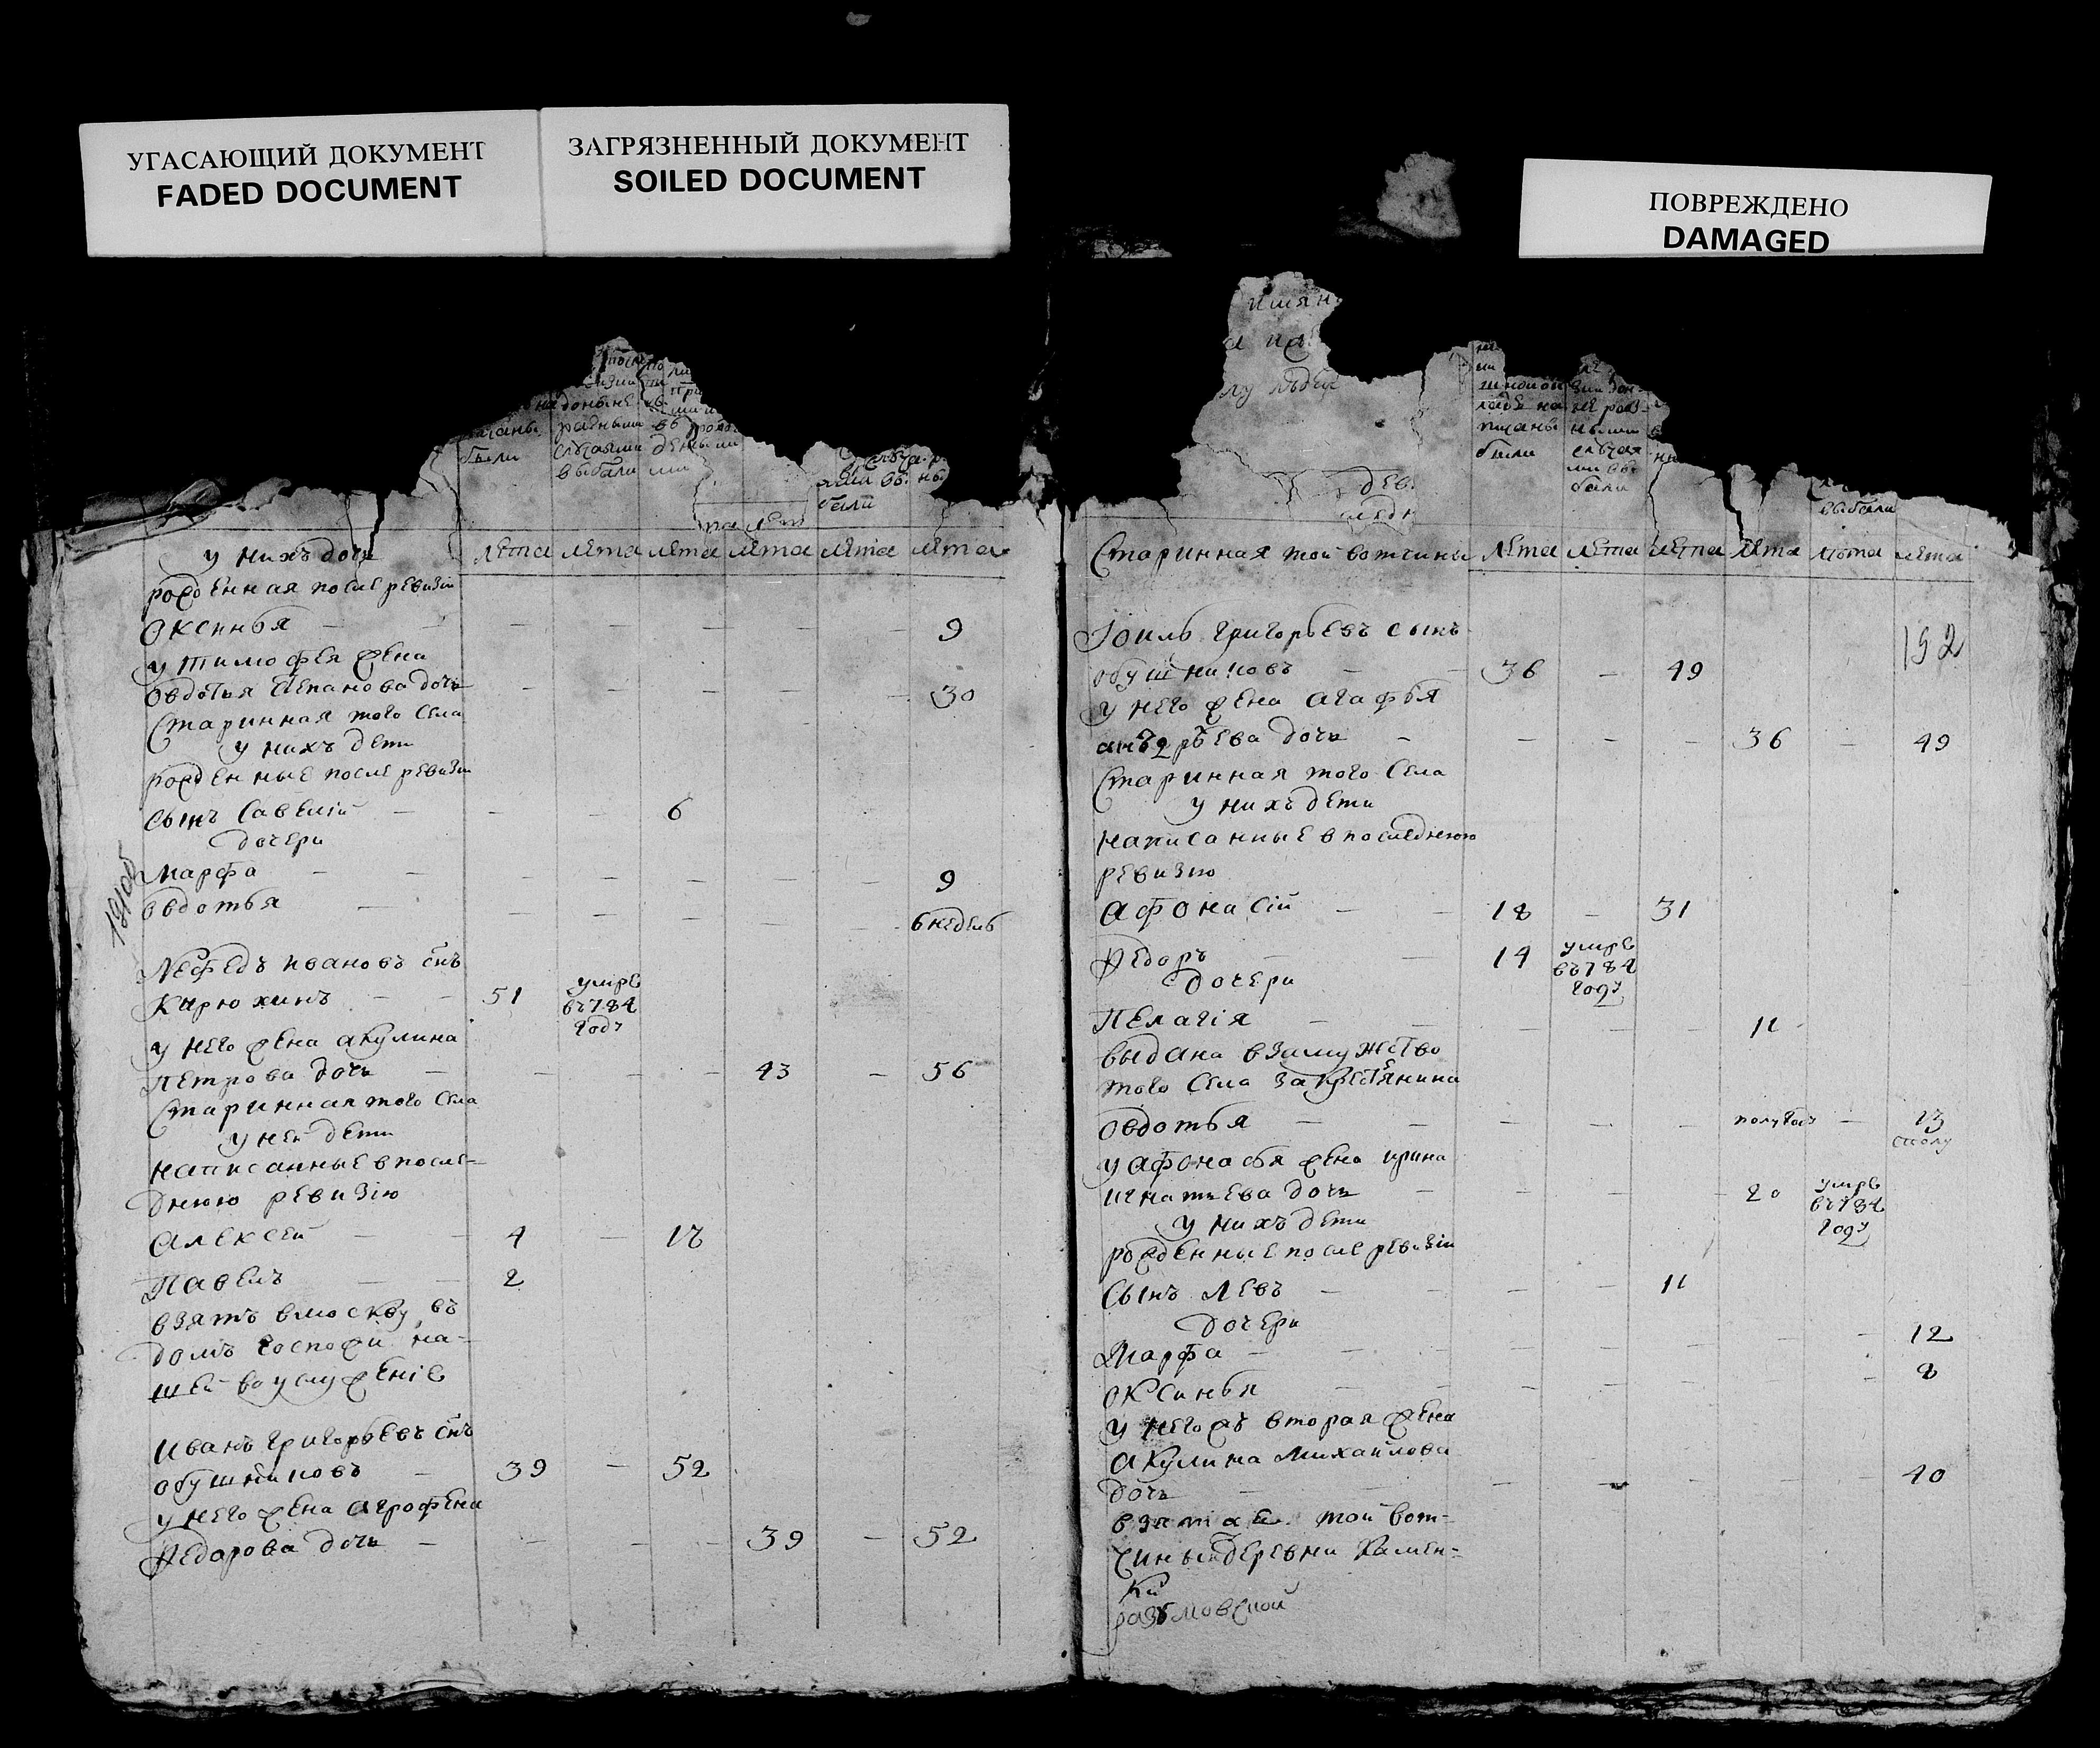 УГАСАЮЩИЙ ДОКУМЕНТ
FADED DOCUMENT
ЗАГРЯЗНЕННЫЙ ДОКУМЕНТ
SOILED DOCUMENT
ПОВРЕЖДЕНО
DAMAGED
доныне
разными
были случаями
выбали
были
лета лета лета лета лета лета
у нихъ дочь
рожденная после ревизiи
Оксинья — — — — — — 9
у тимофея жена
овдотья степанова дочь — — — — — 30
Старинная того села
у нихъ дети
рожденные после ревизiи
сынъ Савелiй — — — 6
дочери
Марфа — — — — — — — 9
овдотья — — — — — — 6 недель
191об
Нефедъ ивановъ снъ
Кирюхинъ — — 51 умре въ 784 году
у него жена акулина
Петрова дочь — — — — 43 — 56
Старинная того села
у ней дети
написанные в после-
днюю ревизiю
Алексей — — 4 — 17
Павелъ — — 2
взятъ в москву въ
домъ господи на-
шей во услуженiе
Иванъ григорьевъ снъ
обушниковъ — 39 — 52
у него жена агрофена
Федорова дочь — — — — 39 — 52
написаны
были
разными
случая
ми вы
бали
выбали
Старинная той вотчины лета лета лета лета лета лета
192
Iоиль григорьевъ сынъ
обушниковъ — — 36 — 49
у него жена агафья
андреева дочь — — — — — 36 — 49
Старинная того села
у нихъ дети
написанные в последнюю
ревизiю
афонасiй — — 18 — 31
Федоръ — — 14 умре въ 784 году
дочери
Пелагiя — — — — — 11
выдана взамужство
того села за крестянина
овдотья — — — — — полугоду — 13
сполу
у афонасья жена ирина
игнатьева дочь — — — — — 20 умре въ 784 году
у нихъ дети
рожденные после ревизiи
сынъ левъ — — — 11
дочери
Марфа — — — — — — — 12
оксинья — — — — — — — 8
у него жъ вторая жена
акулина михайлова
дочь — — — — 40
взятая той вот-
чины деревни камен-
ки